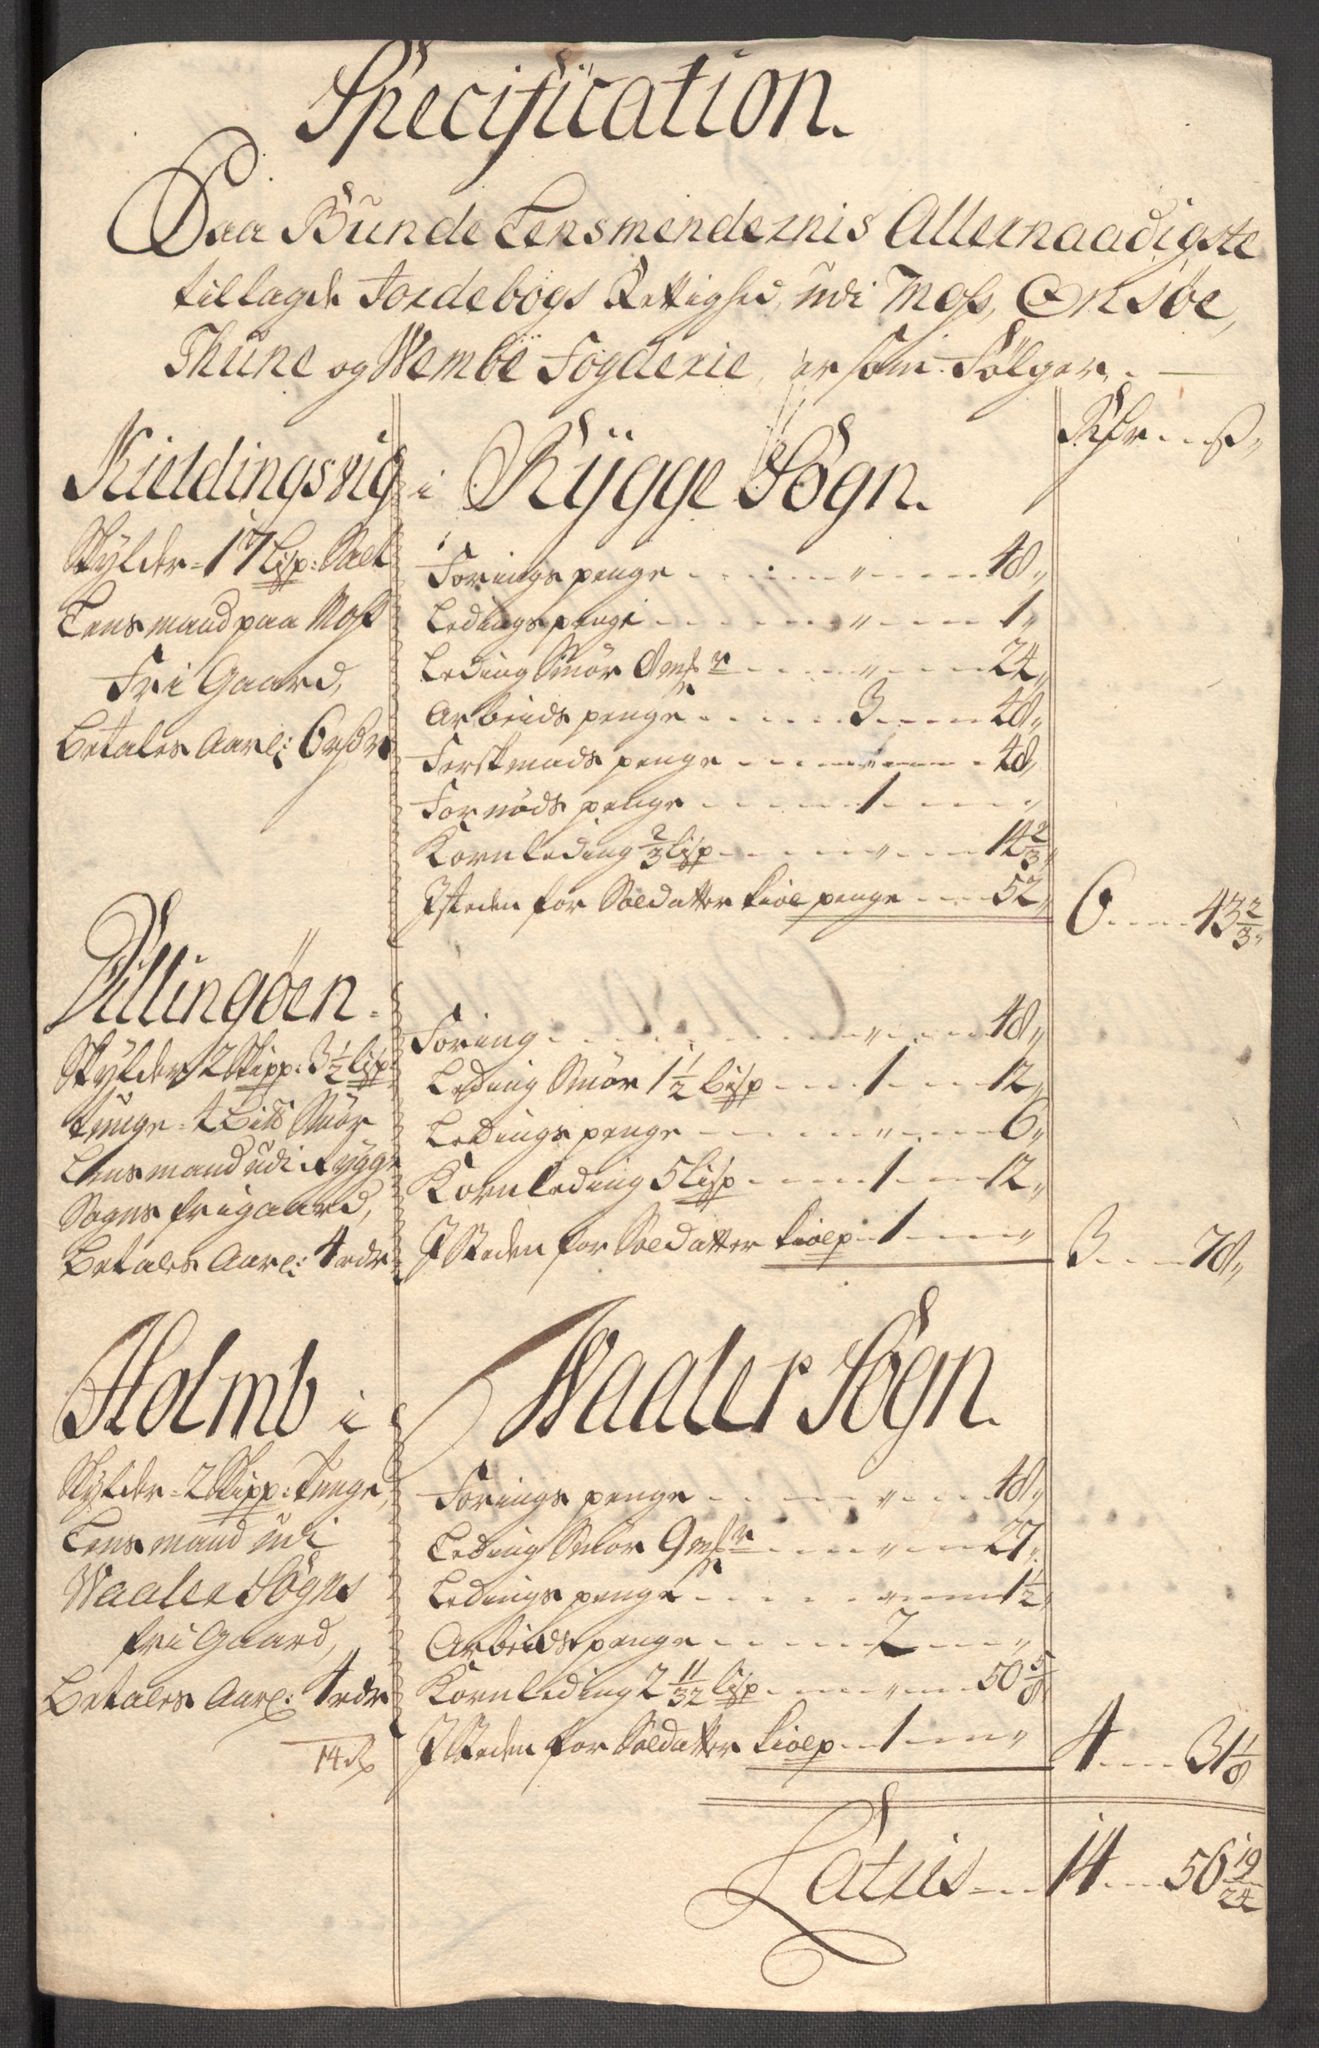 Specification.
Paa Bunde Lensmendernis Allernaadigste
tillagde Jordebogs Rettighed, udi Moss, Onsøe,
Thune og Wembe Fogderie, er som Følger.
Rdr ß
Kieldingsvig i Rÿgge Sogn.
Skylder 17 Lisp: Salt
Lensmand paa Moss
Fri Gaard,
Betales Aarl: 6 rdr
Foringspenge " 48 "
Ledingspenge " 1 "
Leding Smør 8 mkr " 24 "
Arbeidspenge 3 48 "
Ferskmads penge " 48
Fornøds penge 1 "
Kornleding 2/3 lisp " 14 2/3 "
Isteden for Soldatter kiol penge 52 "
6 43 2/3 "
Dillingøen.
Skylder 2 Skipp: 3 1/2 lisp
tunge 1 Bis Smør
Lensmand udi Rygge
Sogns frigaard,
Betales Aarl: 4 rdr
Foring " 48 "
Leding Smør 1 1/2 Bisp 1 12 "
Ledings penge " 6 "
Kornleding 5 lisp 1 12 "
I Steden for Soldatter kiolp 1 "
3 78 "
Holmb i Waaler Sogn.
Skylder 2 Skipp: tunge,
Lensmand udi
Waaler Sogns
fri Gaard,
Betales Aarl: 4 rdr
14 Rdr
Forings penge " 48 "
Leding Smør 9 mkr " 27 "
Ledings penge " 1 1/2 "
Arbeids penge 2 "
Kornleding 2 11/32 lisp " 50 5/8
I Steden for Soldatter kiolp 1 "
4 31 1/8
Latus 14 56 19/24